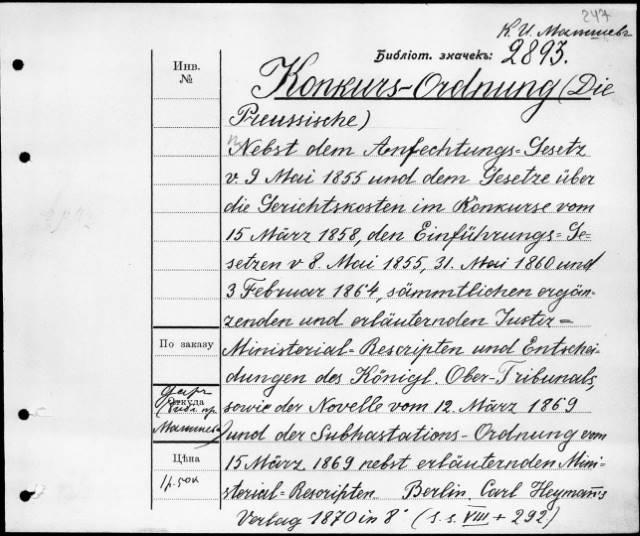 247
К. И. Малышевъ
Библіот. значекъ: 2893.
Инв.
№
Konkurs-Ordnung (Die
Preussische)
Nebst dem Anfechtungs-Gesetz
v. 9 Mai 1855 und dem Gesetze über
die Gerichtskosten im Konkurse vom
15 März 1858, den Einführungs-Ge-
setzen v 8. Mai 1855, 31. Mai 1860 und
3 Februar 1864, sämmtlichen ergän-
zenden und erläuternden Justiz-
По заказу
Ministerial-Rescripten und Entschei-
dungen des Königl. Ober-Tribunals,
Откуда
даръ
библ. пр.
Малышева
sowie der Novelle vom 12. März 1869
und der Subhastations-Ordnung vom
Цѣна
1 р. 50 к
15 März 1869 nebst erläuternden Mini-
sterial-Rescripten. Berlin. Carl Heymann's
Verlag 1870 in 8° (S. S. VIII + 292)